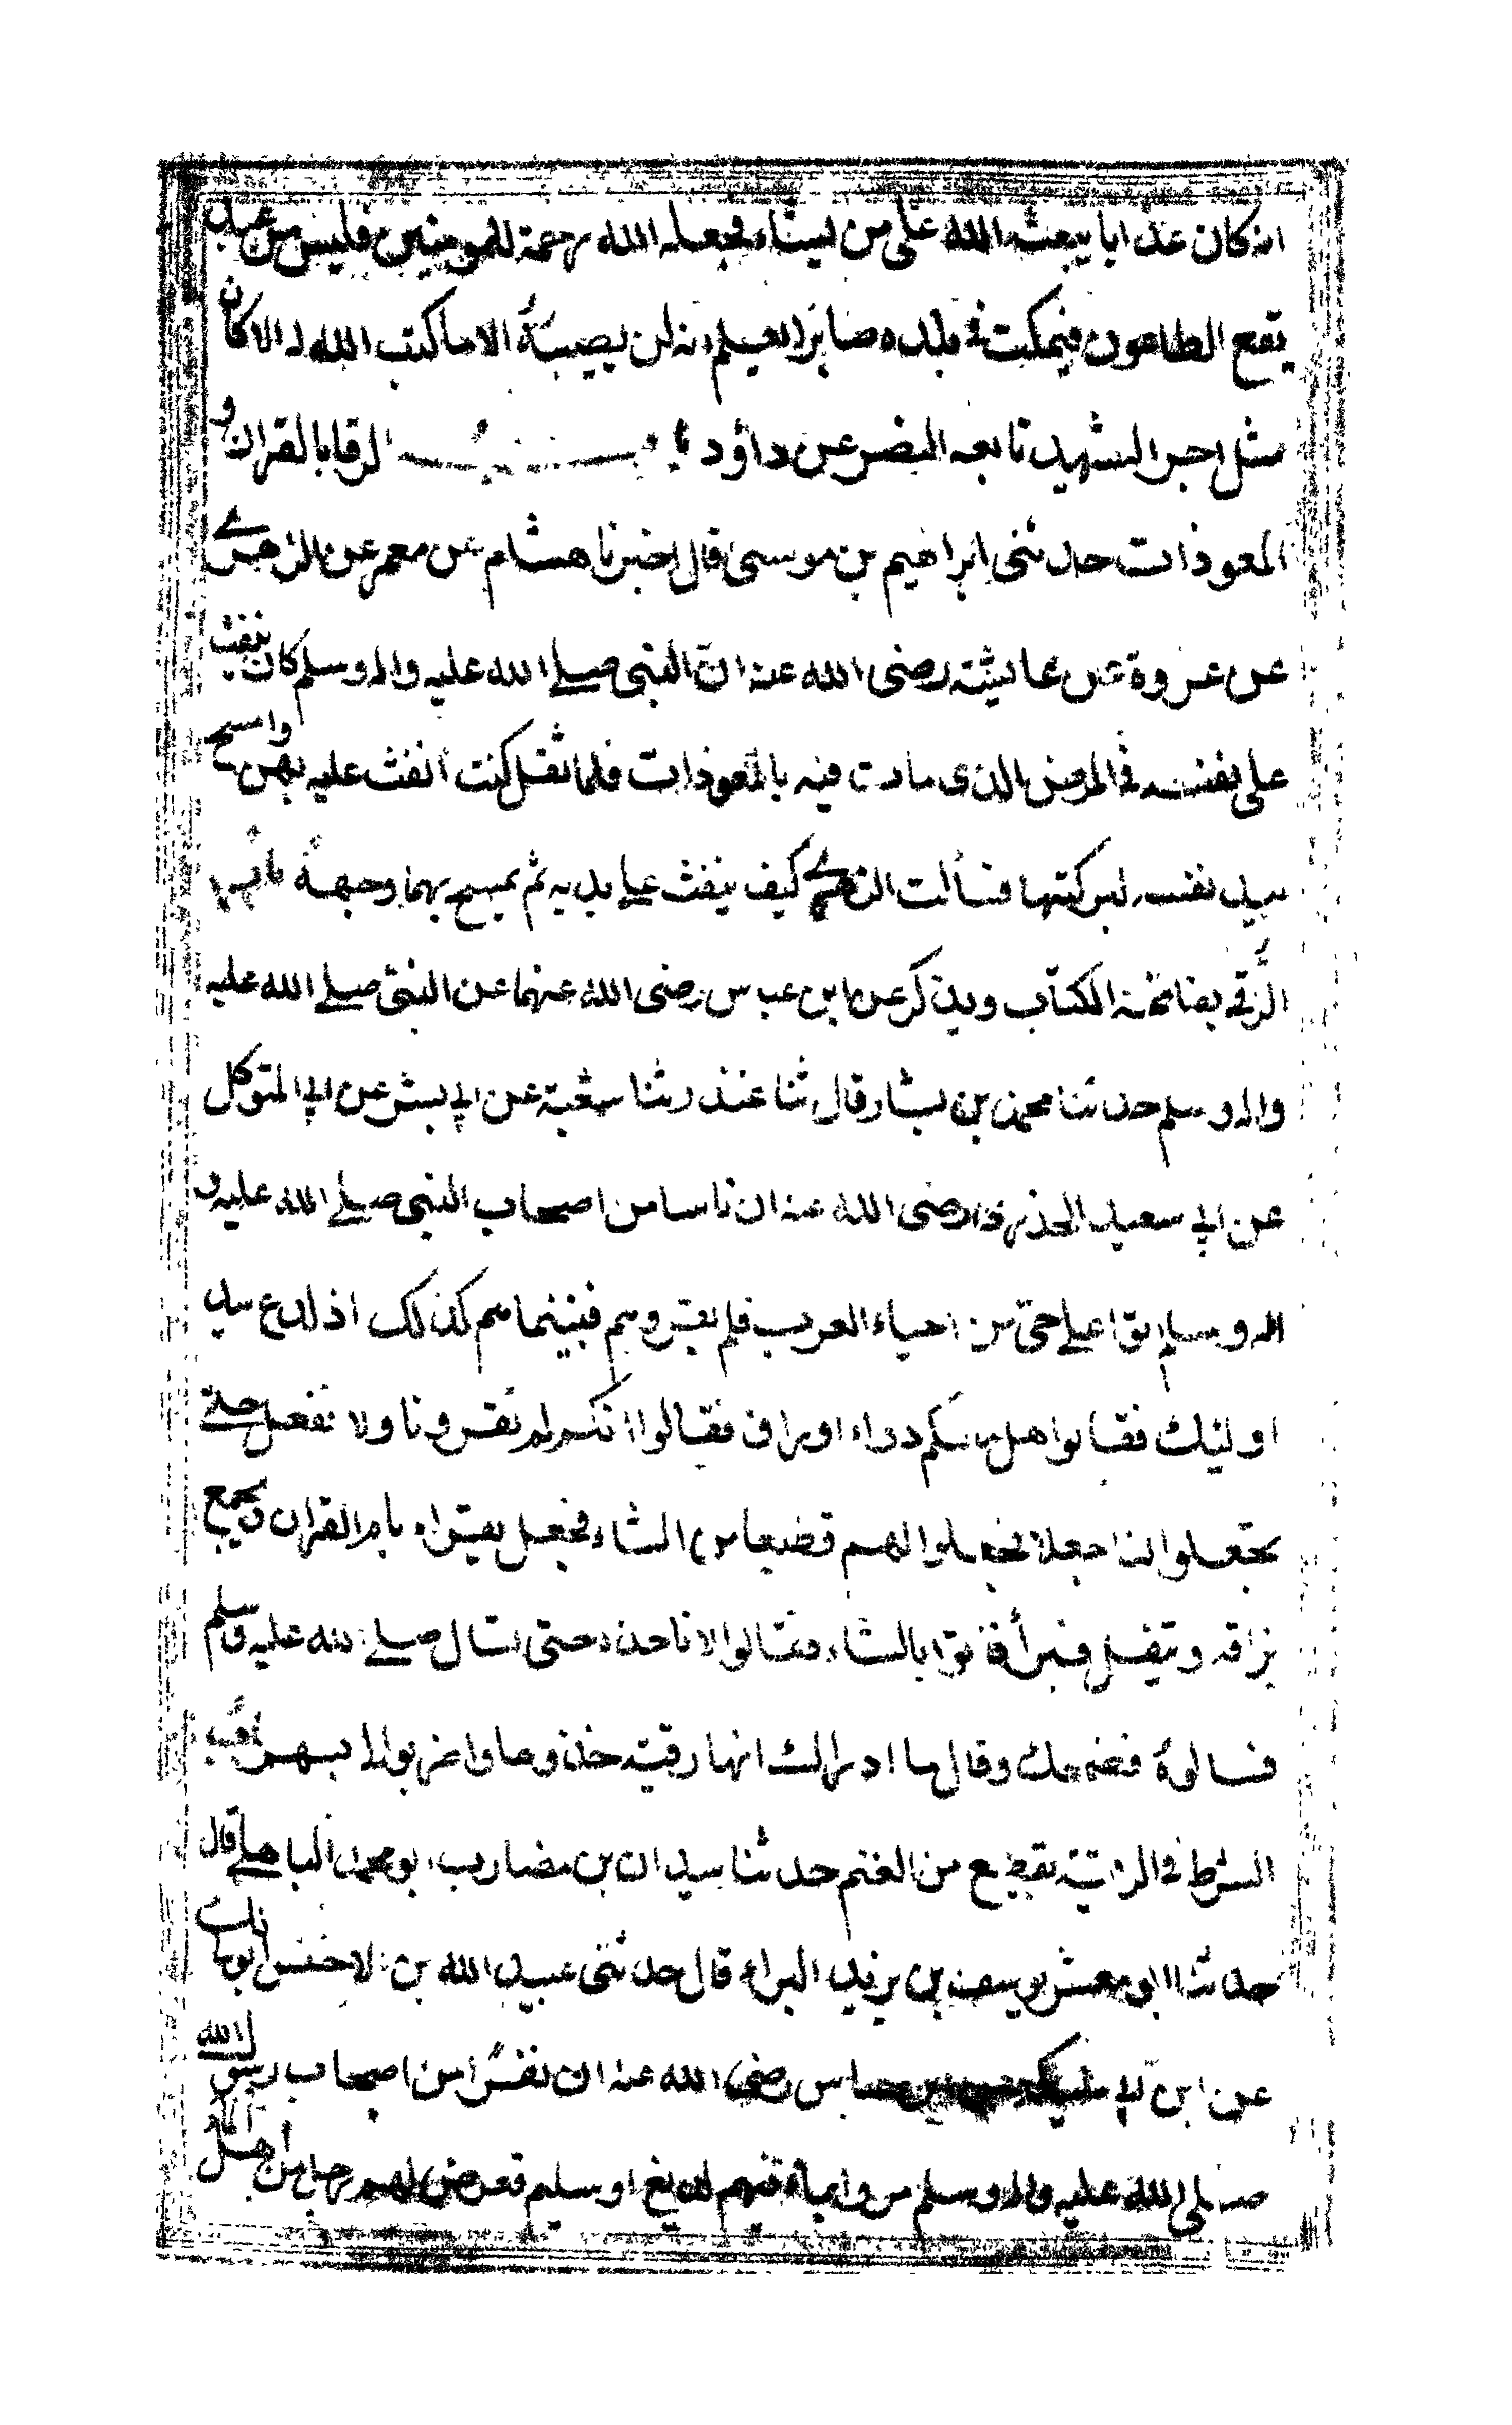 انه كان عذابا يبعثه الله على من يشاء فجعله الله رحمة للمومنين فليس من عبد
يقع الطاعون فيمكث في بلده صابرا يعلم انه لن يصيبه الا ما كتب الله له الا كان
مثل اجر الشهيد تابعه النضر عن داؤد الرقا بالقران و
المعوذات حدثنى ابراهيم بن موسى قال اخبرنا هشام عن معمر عن الزهرے
عن عروة عن عايشة رضى الله عنه ان النبى صلے الله عليه واله وسلم كان ينفث
على نفسه فى المرض الذى مات فيه بالمعوذات فلما ثقل كنت انفث عليه بهن وامسح
بيد نفسه لبركتها فسألت الزهرے كيف ينفث على يديه ثم يمسح بهما وجهه
الرقى بفاتحة الكتاب ويذكر عن ابن عباس رضى الله عنهما عن النبى صلے الله عليه
واله وسلم حدثنا محمد بن بشار قال ثنا غندر ثنا شعبة عن ابي بشر عن ابي المتوكل
عن ابي سعيد الخذرى رضى الله عنه ان ناسا من اصحاب النبى صلے الله عليه و
اله وسلم اتوا على حى من احياء العرب فلم يقروهم فبينما هم كذلك اذ لدع سيد
اوليك فقالوا هل معكم دواء او راق فقالوا انكم لم تقرونا ولا نفعل حتے
تجعلوا لنا جعلا فجعلوا لهم قطيعا من الشاء فجعل يقراء بام القران ويجمع
بزاقه ويتفل فبرأ فاتوا بالشاء فقالوا لا ناخذه حتى نسال صلے الله عليه وسلم
فسالوه فضحك وقال ما ادراك انها رقية خذوها واضربوا لى بسهم
الشرط فى الرقية بقطيع من الغنم حدثنا سيدان بن مضارب ابو محمد الباهلے قال
حدثنا ابو معشر يوسف بن يزيد البراء قال حدثنى عبيد الله بن الاخنس ابو مالك
عن ابن ابي مليكة عن ابن عباس رضى الله عنه ان نفرا من اصحاب رسول الله
صلى الله عليه واله وسلم مروا بماء فيهم لديغ او سليم فعرض لهم رجل من اهل الماء